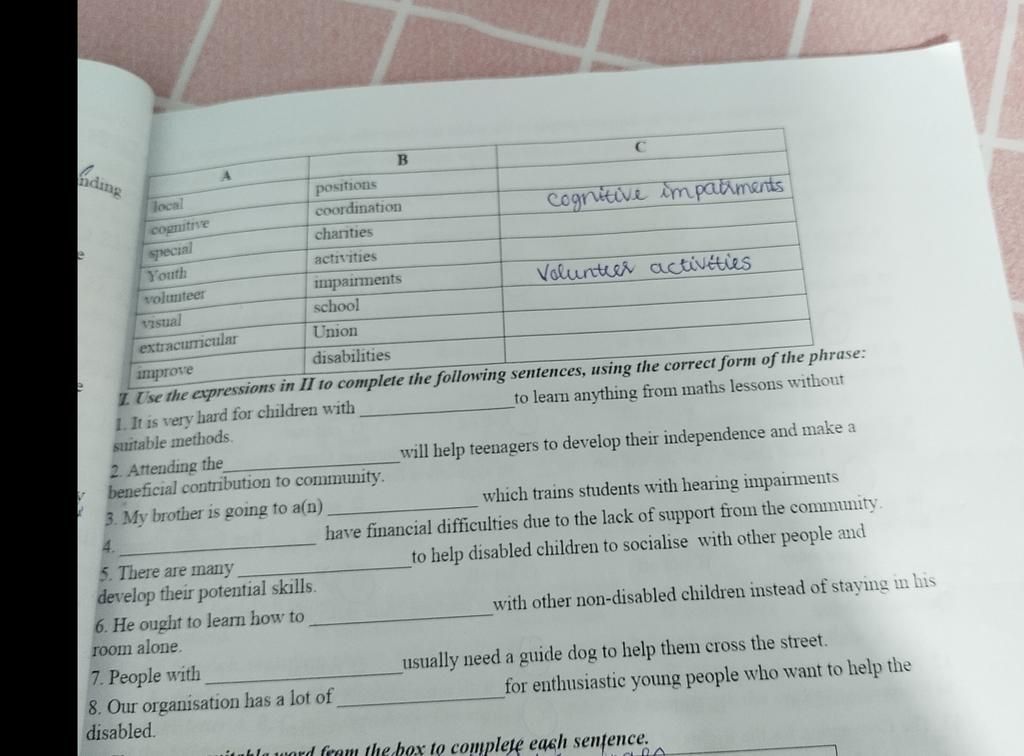 nding
A B C
local positions
cognitive coordination cognitive impairments
special charities
Youth activities
volunteer impairments Volunteer activities
visual school
extracurricular Union
improve disabilities
I. Use the expressions in II to complete the following sentences, using the correct form of the phrase:
1. It is very hard for children with ________________ to learn anything from maths lessons without
suitable methods.
2. Attending the__________________will help teenagers to develop their independence and make a
beneficial contribution to community.
3. My brother is going to a(n) ________________ which trains students with hearing impairments
4. ____________________ have financial difficulties due to the lack of support from the community.
5. There are many __________________to help disabled children to socialise with other people and
develop their potential skills.
6. He ought to learn how to __________________with other non-disabled children instead of staying in his
room alone.
7. People with ____________________usually need a guide dog to help them cross the street.
8. Our organisation has a lot of _________________for enthusiastic young people who want to help the
disabled.
word from the box to complete each sentence.